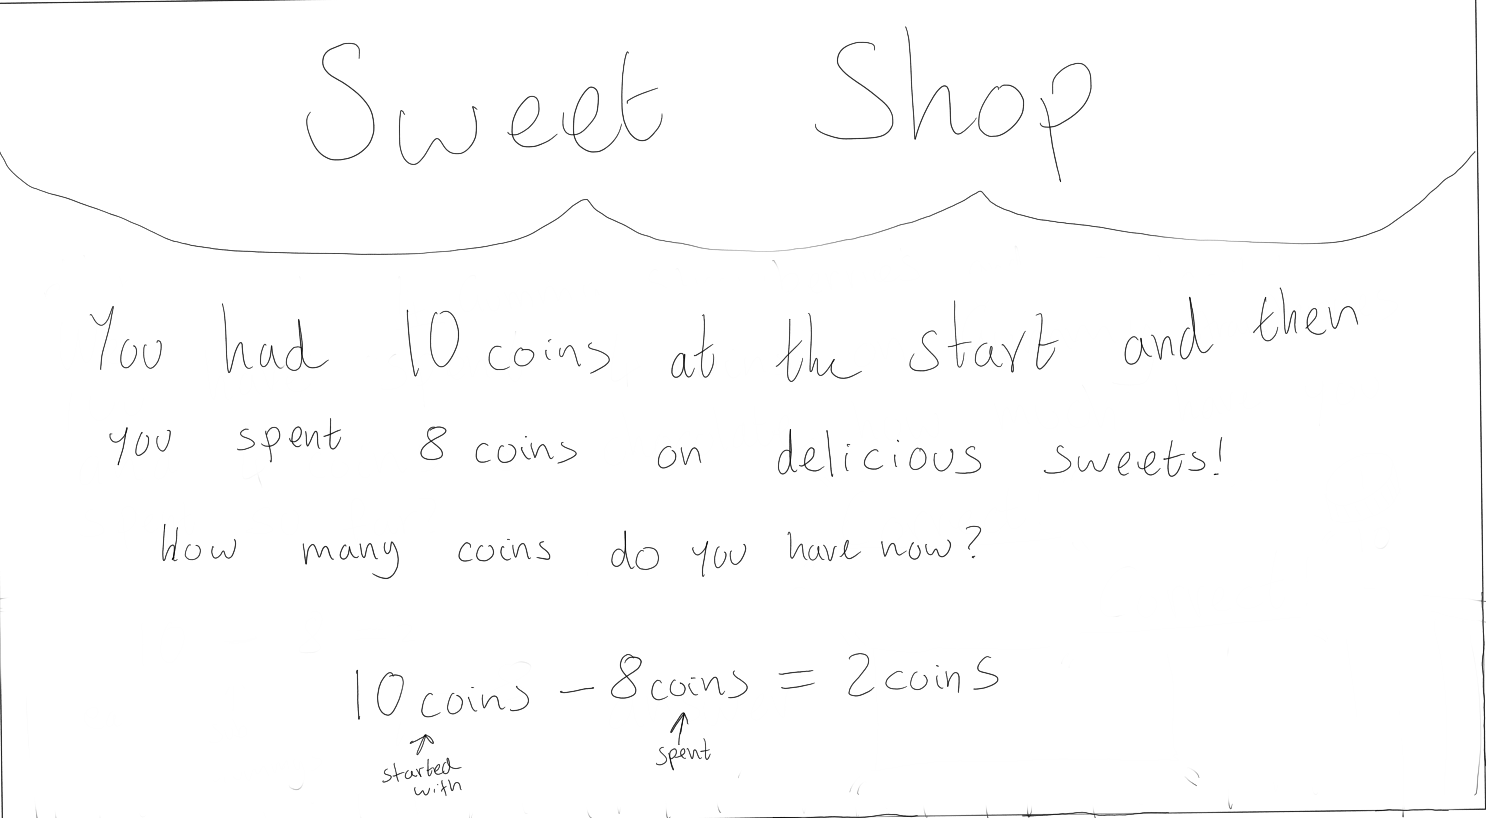 Sweet Shop
You had 10 coins at the start and then
you spent 8 coins on delicious sweets!
How many coins do you have now?
10 coins - 8 coins = 2 coins
↑ ↑
started spent
with